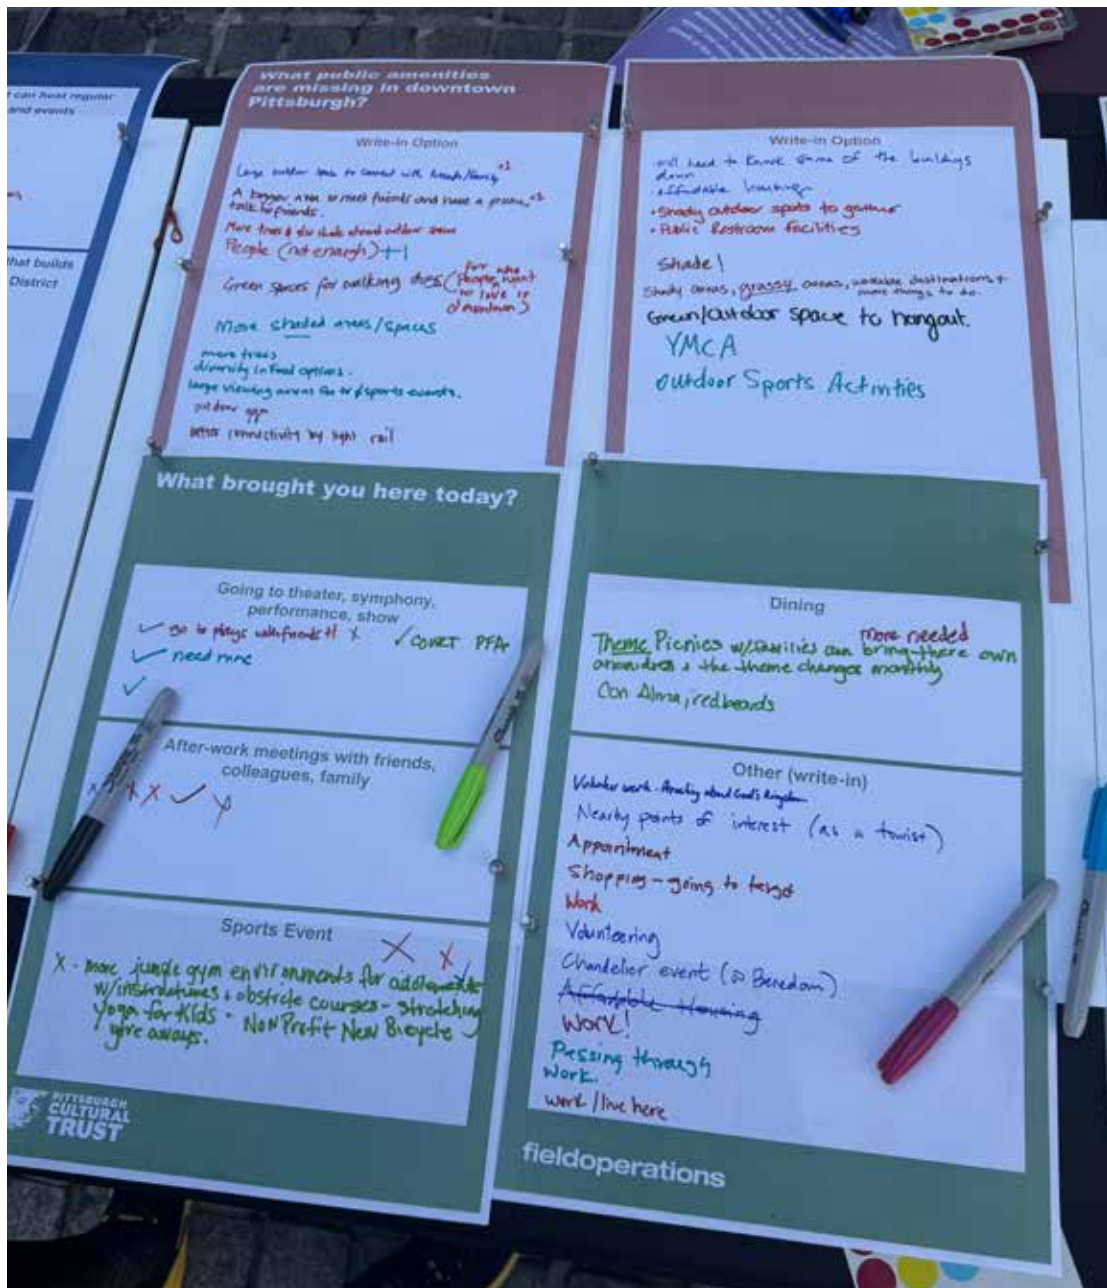 t can host regular
and events
that builds
District
What public amenities
are missing in downtown
Pittsburgh?
Write-in Option
Large outdoor to connect with friends/family +1
A bigger area to meet friends and have a picnic, +1
talk to friends.
More trees & shade around outdoor
People (not enough) ++1
Green spaces for walking dogs (for
people who want
to live in
downtown)
More shaded areas/spaces
more trees
diversity in food options.
large viewing areas for sports events.
outdoor gym
better connectivity by light rail
Write-in Option
will need to knock some of the buildings
down
• affordable housing
• Shady outdoor spots to gather
• Public Restroom Facilities
Shade!
Shady areas, grassy areas, walkable destinations +
more things to do.
Green/outdoor space to hangout.
YMCA
Outdoor Sports Activities
What brought you here today?
Going to theater, symphony,
performance, show
go to plays with friends +1 X
✓ need more
✓
After-work meetings with friends,
colleagues, family
X X X ✓
Sports Event
X X
X - more jungle gym environments for
w/instructures + obstcle courses - stretching
Yoga for Kids - NonProfit New Bicycle
give aways.
PITTSBURGH
CULTURAL
TRUST
Dining
more needed
Theme Picnics w/families can bring there own
& the theme changes monthly
Con Alma, redbeards
Other (write-in)
Volunteer work - about God's Kingdom
Nearby points of interest (as a tourist)
Appointment
Shopping - going to target
Work
Volunteering
Chandelier event (@ Benedum)
Affordable Housing
Work!
Passing through
Work.
work/live here
fieldoperations